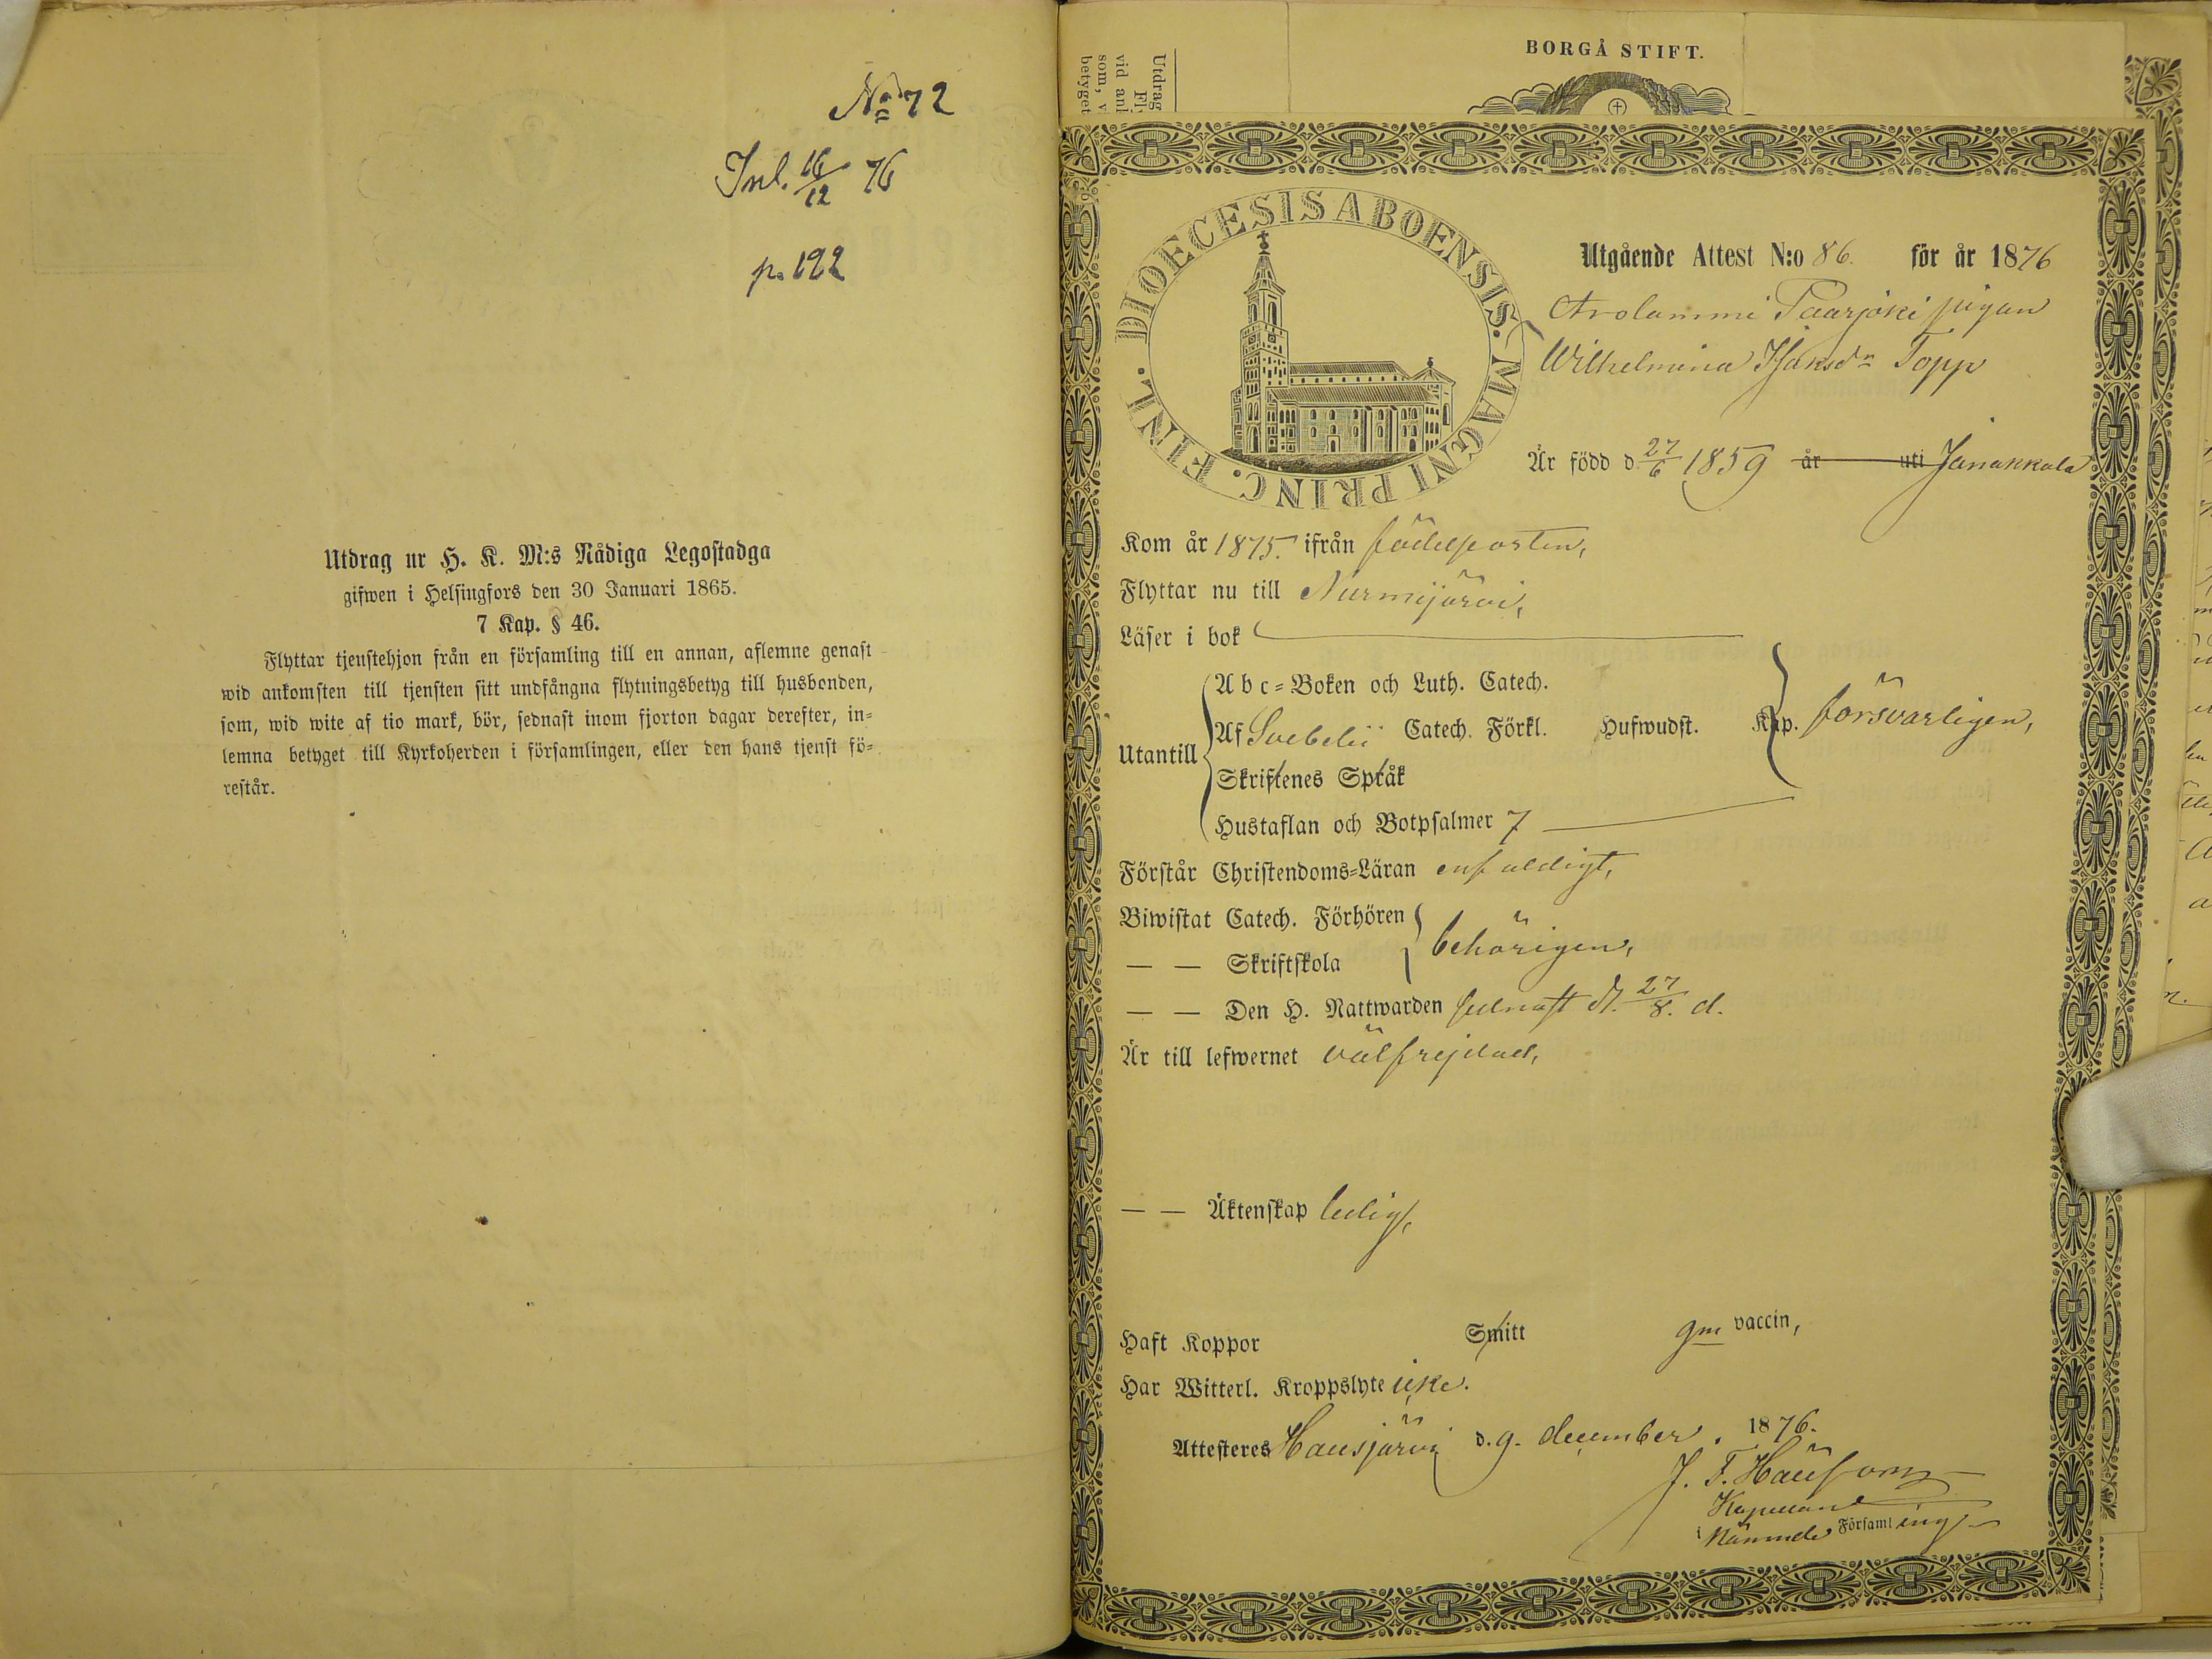 No 72
Inl. 16/12 76
p. 122
Utdrag ur H. K. M:s Nådiga Legostadga
gifwen i Helsingfors den 30 Januari 1865.
7 Kap. § 46.
Flyttar tjenstehjon från en församling till en annan, aflemne genast
wid ankomsten till tjensten sitt undfångna flytningsbetyg till husbonden,
som, wid wite af tio mark, bör, sednast inom fjorton dagar derefter, in-
lemna betyget till Kyrkoherden i församlingen, eller den hans tjenst fö-
restår.
Utdrag
Fl
vid anl
som, v
betyget
BORGÅ STIFT.
DIOECESIS ABOENSIS. MAGNI PRINC. FINL.
Utgående Attest N:o 86. för år 1876
Arolammi Paarjoki pigan
Wilhelmina Isaksdr Topp
Är född d. 27/6 1859 år uti Janakkala
Kom år 1875. ifrån födelseorten,
Flyttar nu till Nurmijärvi,
Läser i bok
Abc-Boken och Luth. Catech.
Utantill Af Svebelii Catech. Förkl. Hufwudst. Kap. försvarligen,
Skriftenes Språk
Hustaflan och Botpsalmer 7
Förstår Christendoms-Läran enfaldigt,
Biwistat Catech. Förhören
— — Skriftskola behörigen,
— — Den H. Nattwarden sednast d. 27/8. d.
Är till lefwernet välfrejdad,
— — Äktenskap ledig,
Haft Koppor Smitt gm vaccin,
Har Witterl. Kroppslyte icke.
Attesteras Hausjärvi d. 9. december. 1876.
J. F.
Kapellan
i nämnde Församling